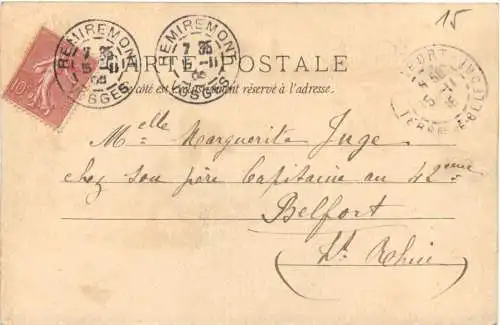 15
REMIREMONT
7 35
15 -11
VOSGES
REMIREMONT
7 35
15 -11
05
VOSGES
BELFORT
15 -11
10
CARTE POSTALE
Ce côté est exclusivement réservé à l'adresse.
Melle Marguerite Juge
chez son père Capitaine au 42ème
Belfort
(Ht Rhin)